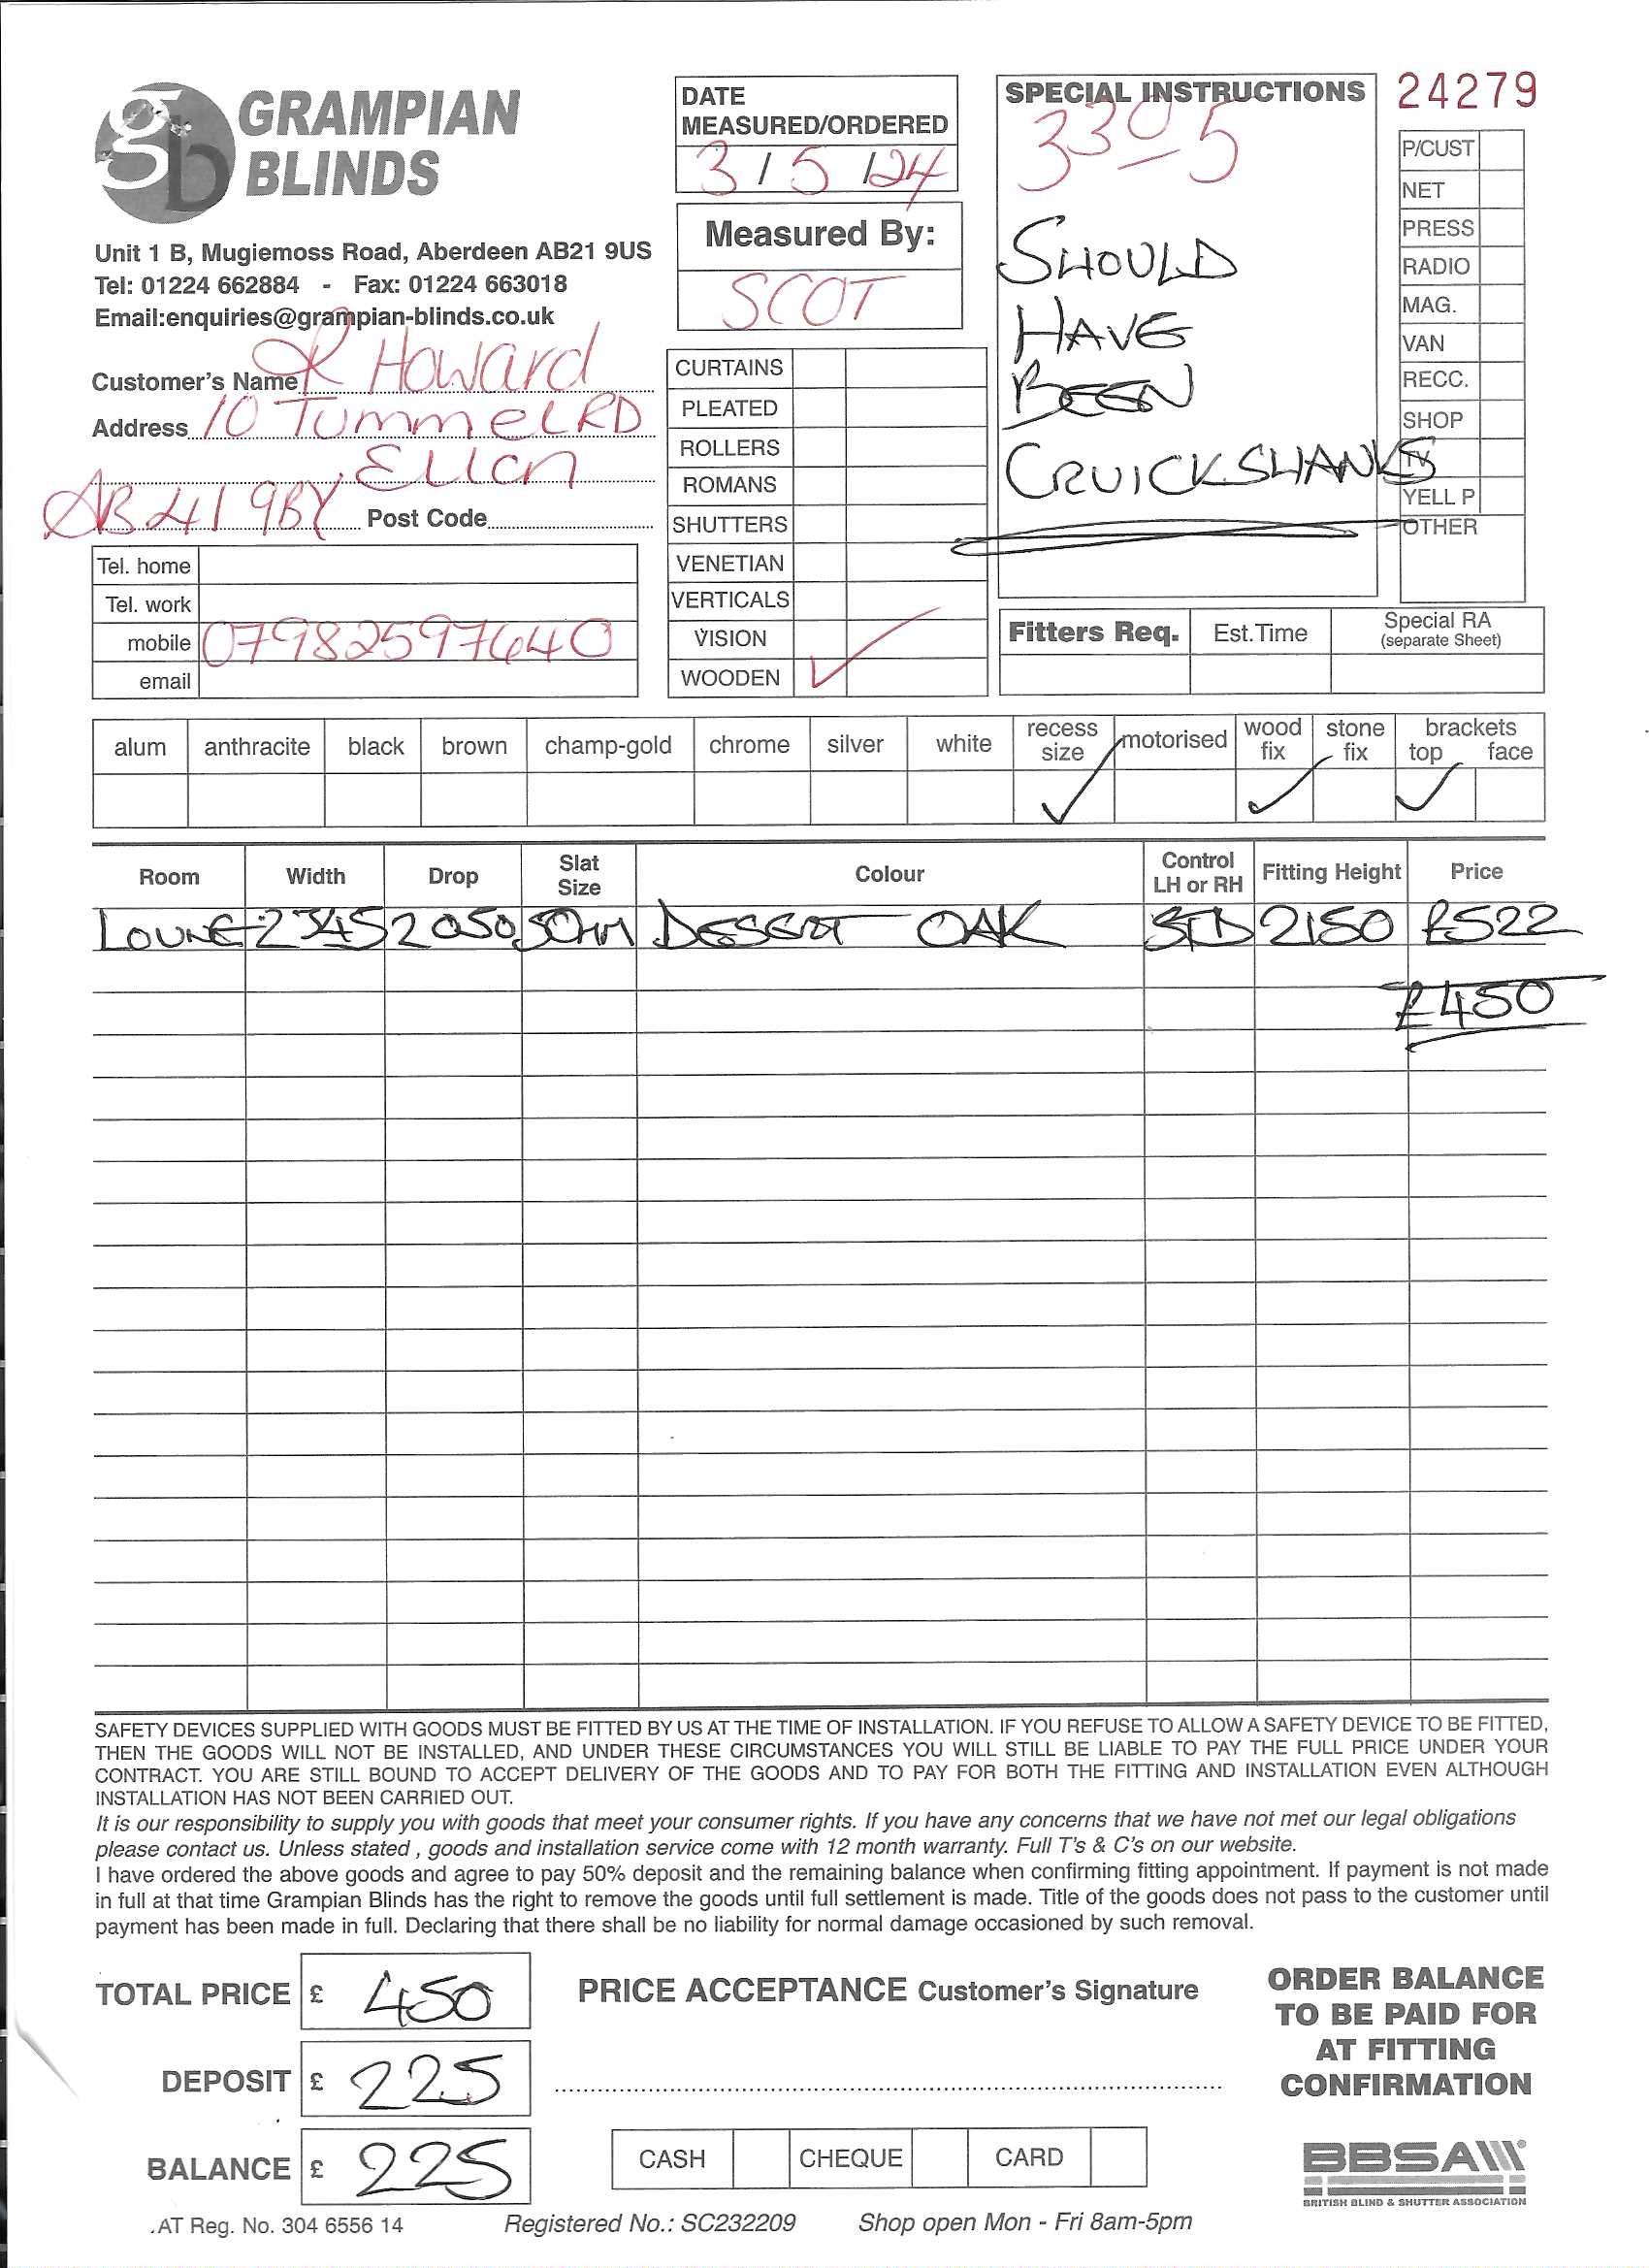 gb GRAMPIAN
BLINDS
Unit 1 B, Mugiemoss Road, Aberdeen AB21 9US
Tel: 01224 662884 - Fax: 01224 663018
Email:enquiries@grampian-blinds.co.uk
Customer's Name R Howard
Address 10 Tummel RD
Ellon
AB41 9BY Post Code
Tel. home
Tel. work
mobile 07982597640
email
DATE
MEASURED/ORDERED
3 / 5 / 24
Measured By:
SCOT
CURTAINS
PLEATED
ROLLERS
ROMANS
SHUTTERS
VENETIAN
VERTICALS
VISION
WOODEN ✓
SPECIAL INSTRUCTIONS
3305
SHOULD
HAVE
BEEN
CRUICKSHANKS
24279
P/CUST
NET
PRESS
RADIO
MAG.
VAN
RECC.
SHOP
TV
YELL P
OTHER
Fitters Req. Est.Time Special RA
(separate Sheet)
alum anthracite black brown champ-gold chrome silver white recess size motorised wood fix stone fix brackets top face
✓ ✓ ✓
Room Width Drop Slat Size Colour Control LH or RH Fitting Height Price
LOUNE 2345 2050 50MM DESSERT OAK STD 2150 £522
£450
SAFETY DEVICES SUPPLIED WITH GOODS MUST BE FITTED BY US AT THE TIME OF INSTALLATION. IF YOU REFUSE TO ALLOW A SAFETY DEVICE TO BE FITTED,
THEN THE GOODS WILL NOT BE INSTALLED, AND UNDER THESE CIRCUMSTANCES YOU WILL STILL BE LIABLE TO PAY THE FULL PRICE UNDER YOUR
CONTRACT. YOU ARE STILL BOUND TO ACCEPT DELIVERY OF THE GOODS AND TO PAY FOR BOTH THE FITTING AND INSTALLATION EVEN ALTHOUGH
INSTALLATION HAS NOT BEEN CARRIED OUT.
It is our responsibility to supply you with goods that meet your consumer rights. If you have any concerns that we have not met our legal obligations
please contact us. Unless stated , goods and installation service come with 12 month warranty. Full T's & C's on our website.
I have ordered the above goods and agree to pay 50% deposit and the remaining balance when confirming fitting appointment. If payment is not made
in full at that time Grampian Blinds has the right to remove the goods until full settlement is made. Title of the goods does not pass to the customer until
payment has been made in full. Declaring that there shall be no liability for normal damage occasioned by such removal.
TOTAL PRICE £ 450
DEPOSIT £ 225
BALANCE £ 225
PRICE ACCEPTANCE Customer's Signature
CASH CHEQUE CARD
ORDER BALANCE
TO BE PAID FOR
AT FITTING
CONFIRMATION
BBSA
BRITISH BLIND & SHUTTER ASSOCIATION
.AT Reg. No. 304 6556 14 Registered No.: SC232209 Shop open Mon - Fri 8am-5pm